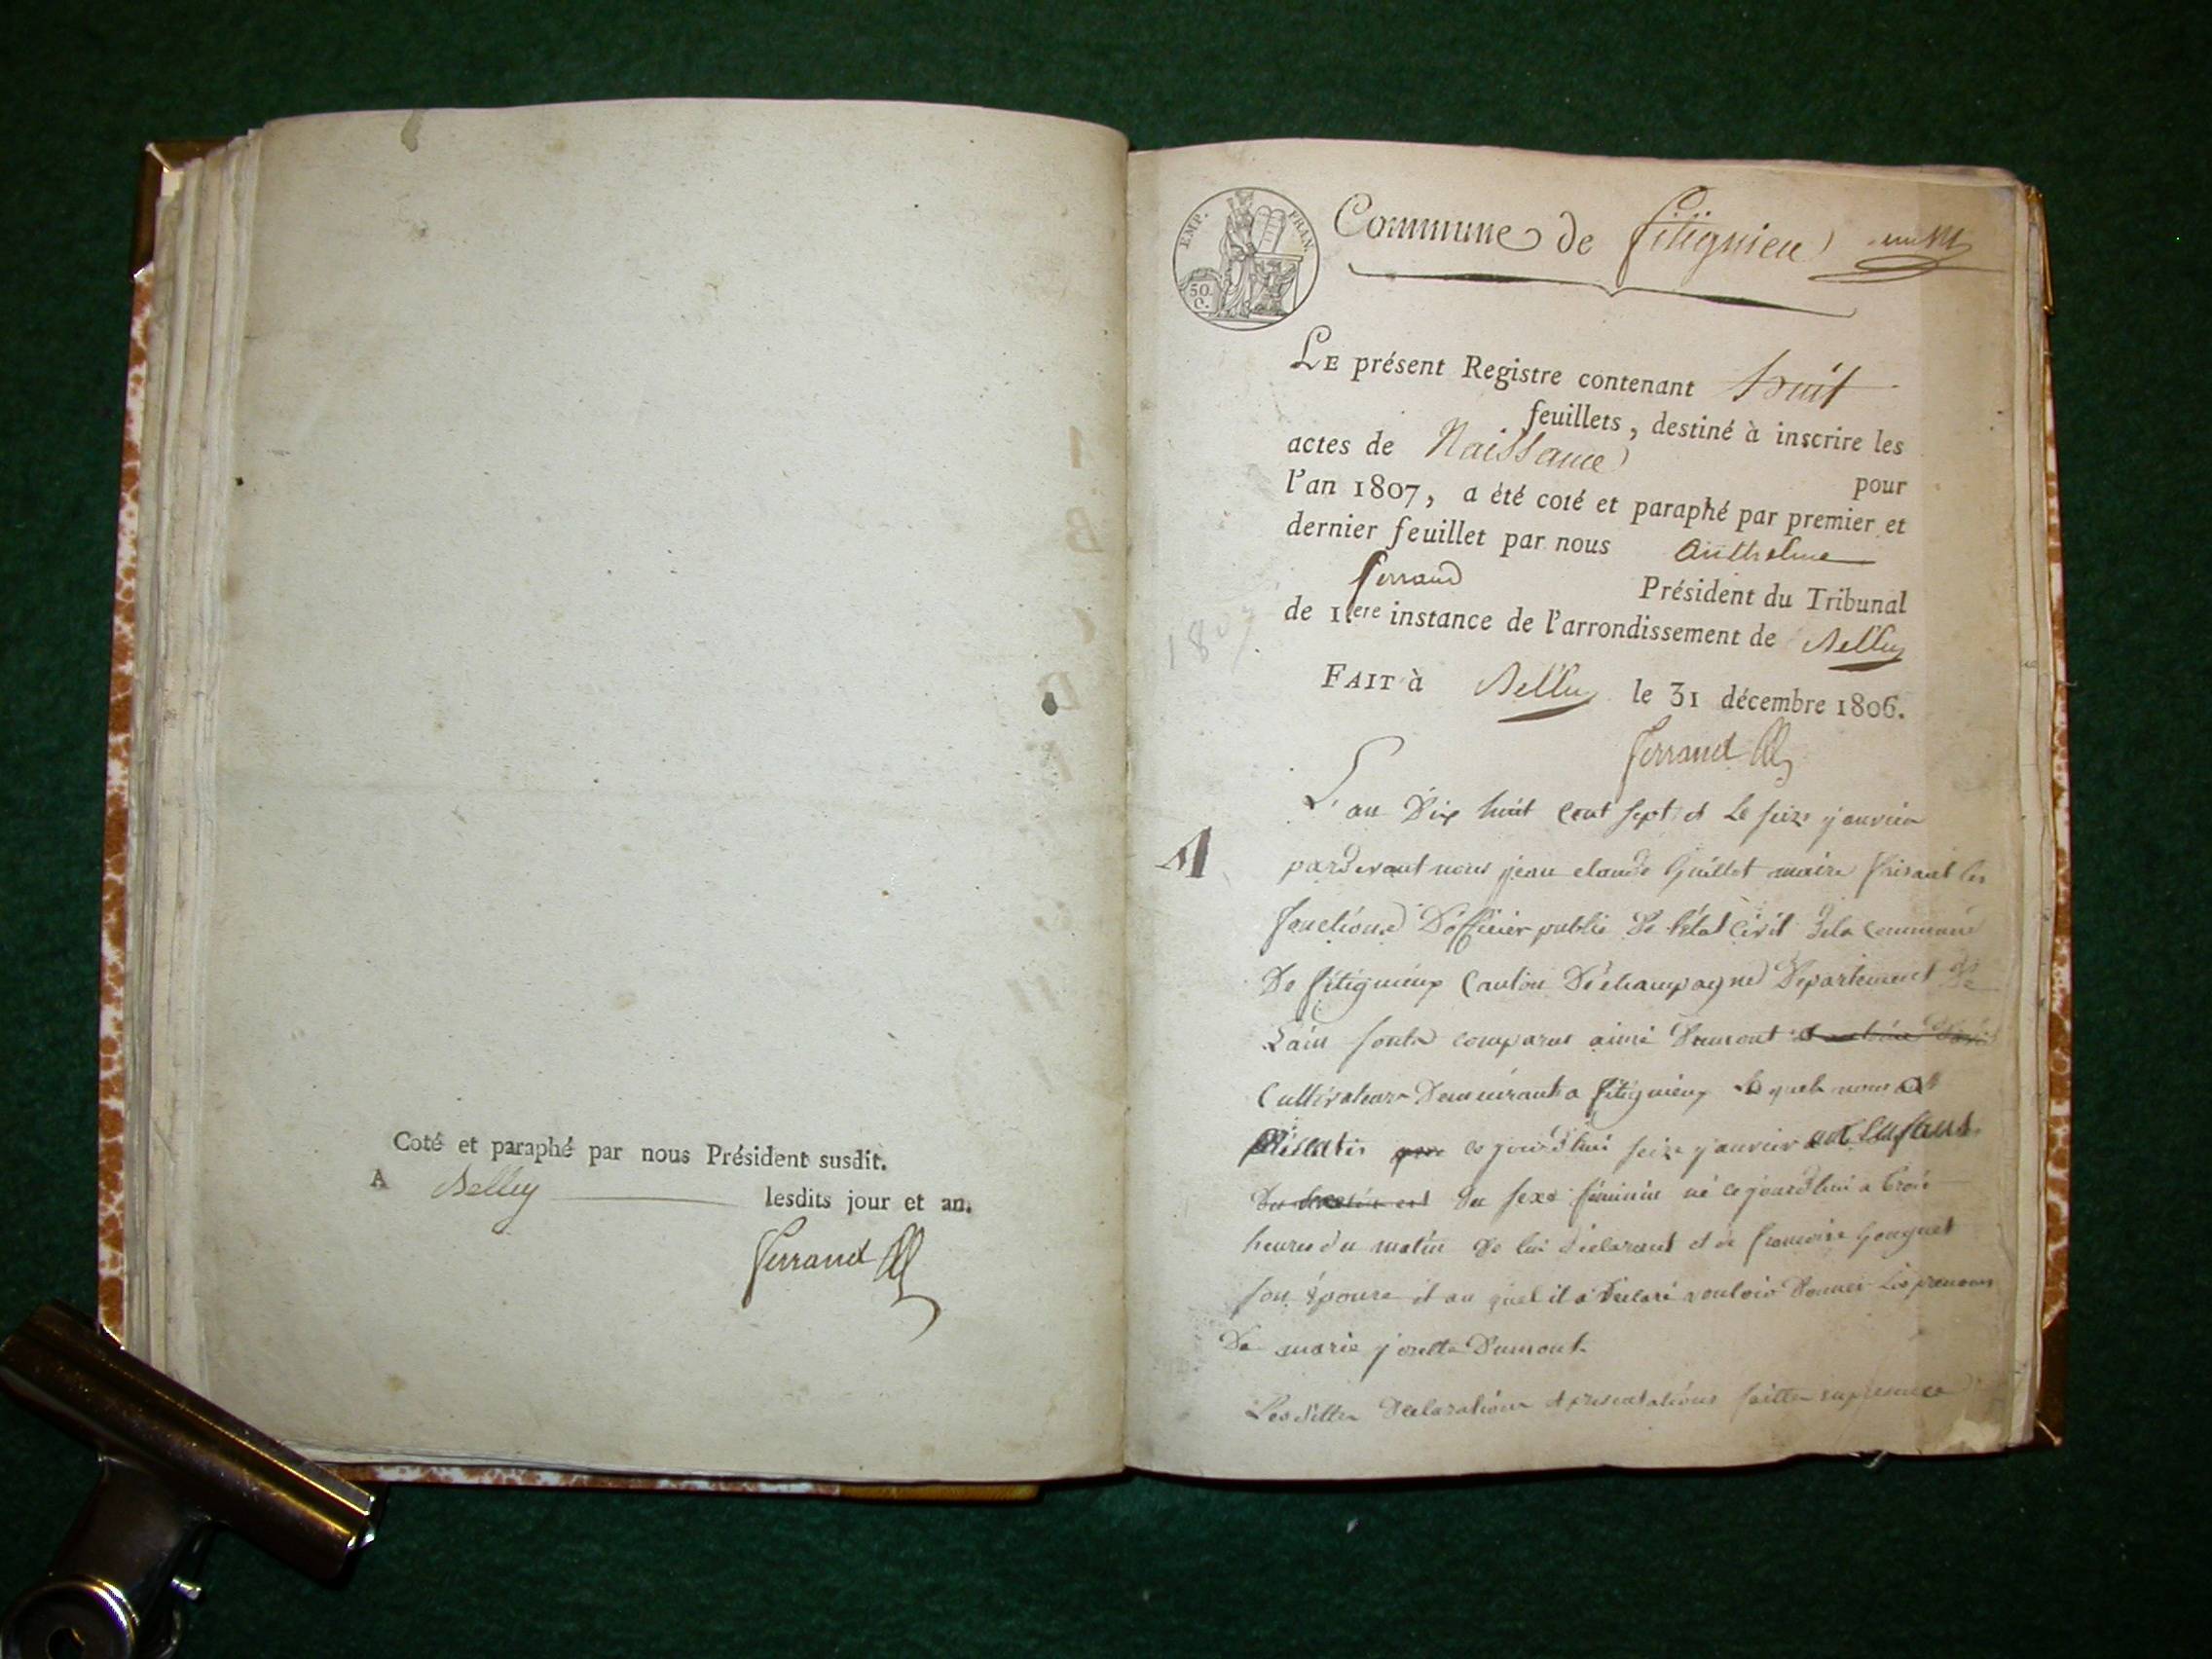 Coté et paraphé par nous Président susdit.
A Belley lesdits jour et an.
Ferrand
EMP. FRAN.
50. C.
Commune de fitignieu
LE présent Registre contenant huit
feuillets, destiné à inscrire les
actes de Naissance pour
l'an 1807, a été coté et paraphé par premier et
dernier feuillet par nous Anthelme
ferrand Président du Tribunal
de 1.ere instance de l'arrondissement de Belley
FAIT à Belley le 31 décembre 1806.
Ferrand
1807
L'an Dix huit cent sept et le seize janvier
1
pardevant nous jean claude Guillot maire faisant les
fonctions D'officier public De l'état civil De la commune
De fitignieux Canton De champagne Departement De
L'ain comparus aimé Dumont
Cultivateur Demeurant a fitignieux le quel nous a
présentés ce jourd'hui seize janvier un Enfant
Du sexe féminin né ce jourd'hui a trois
heures du matin De lui déclarant et de francoise Gouguet
son épouse et au quel il a Déclaré vouloir Donner les prenoms
De marie josette Dumont.
Les dittes Déclarations et présentations faittes en presence